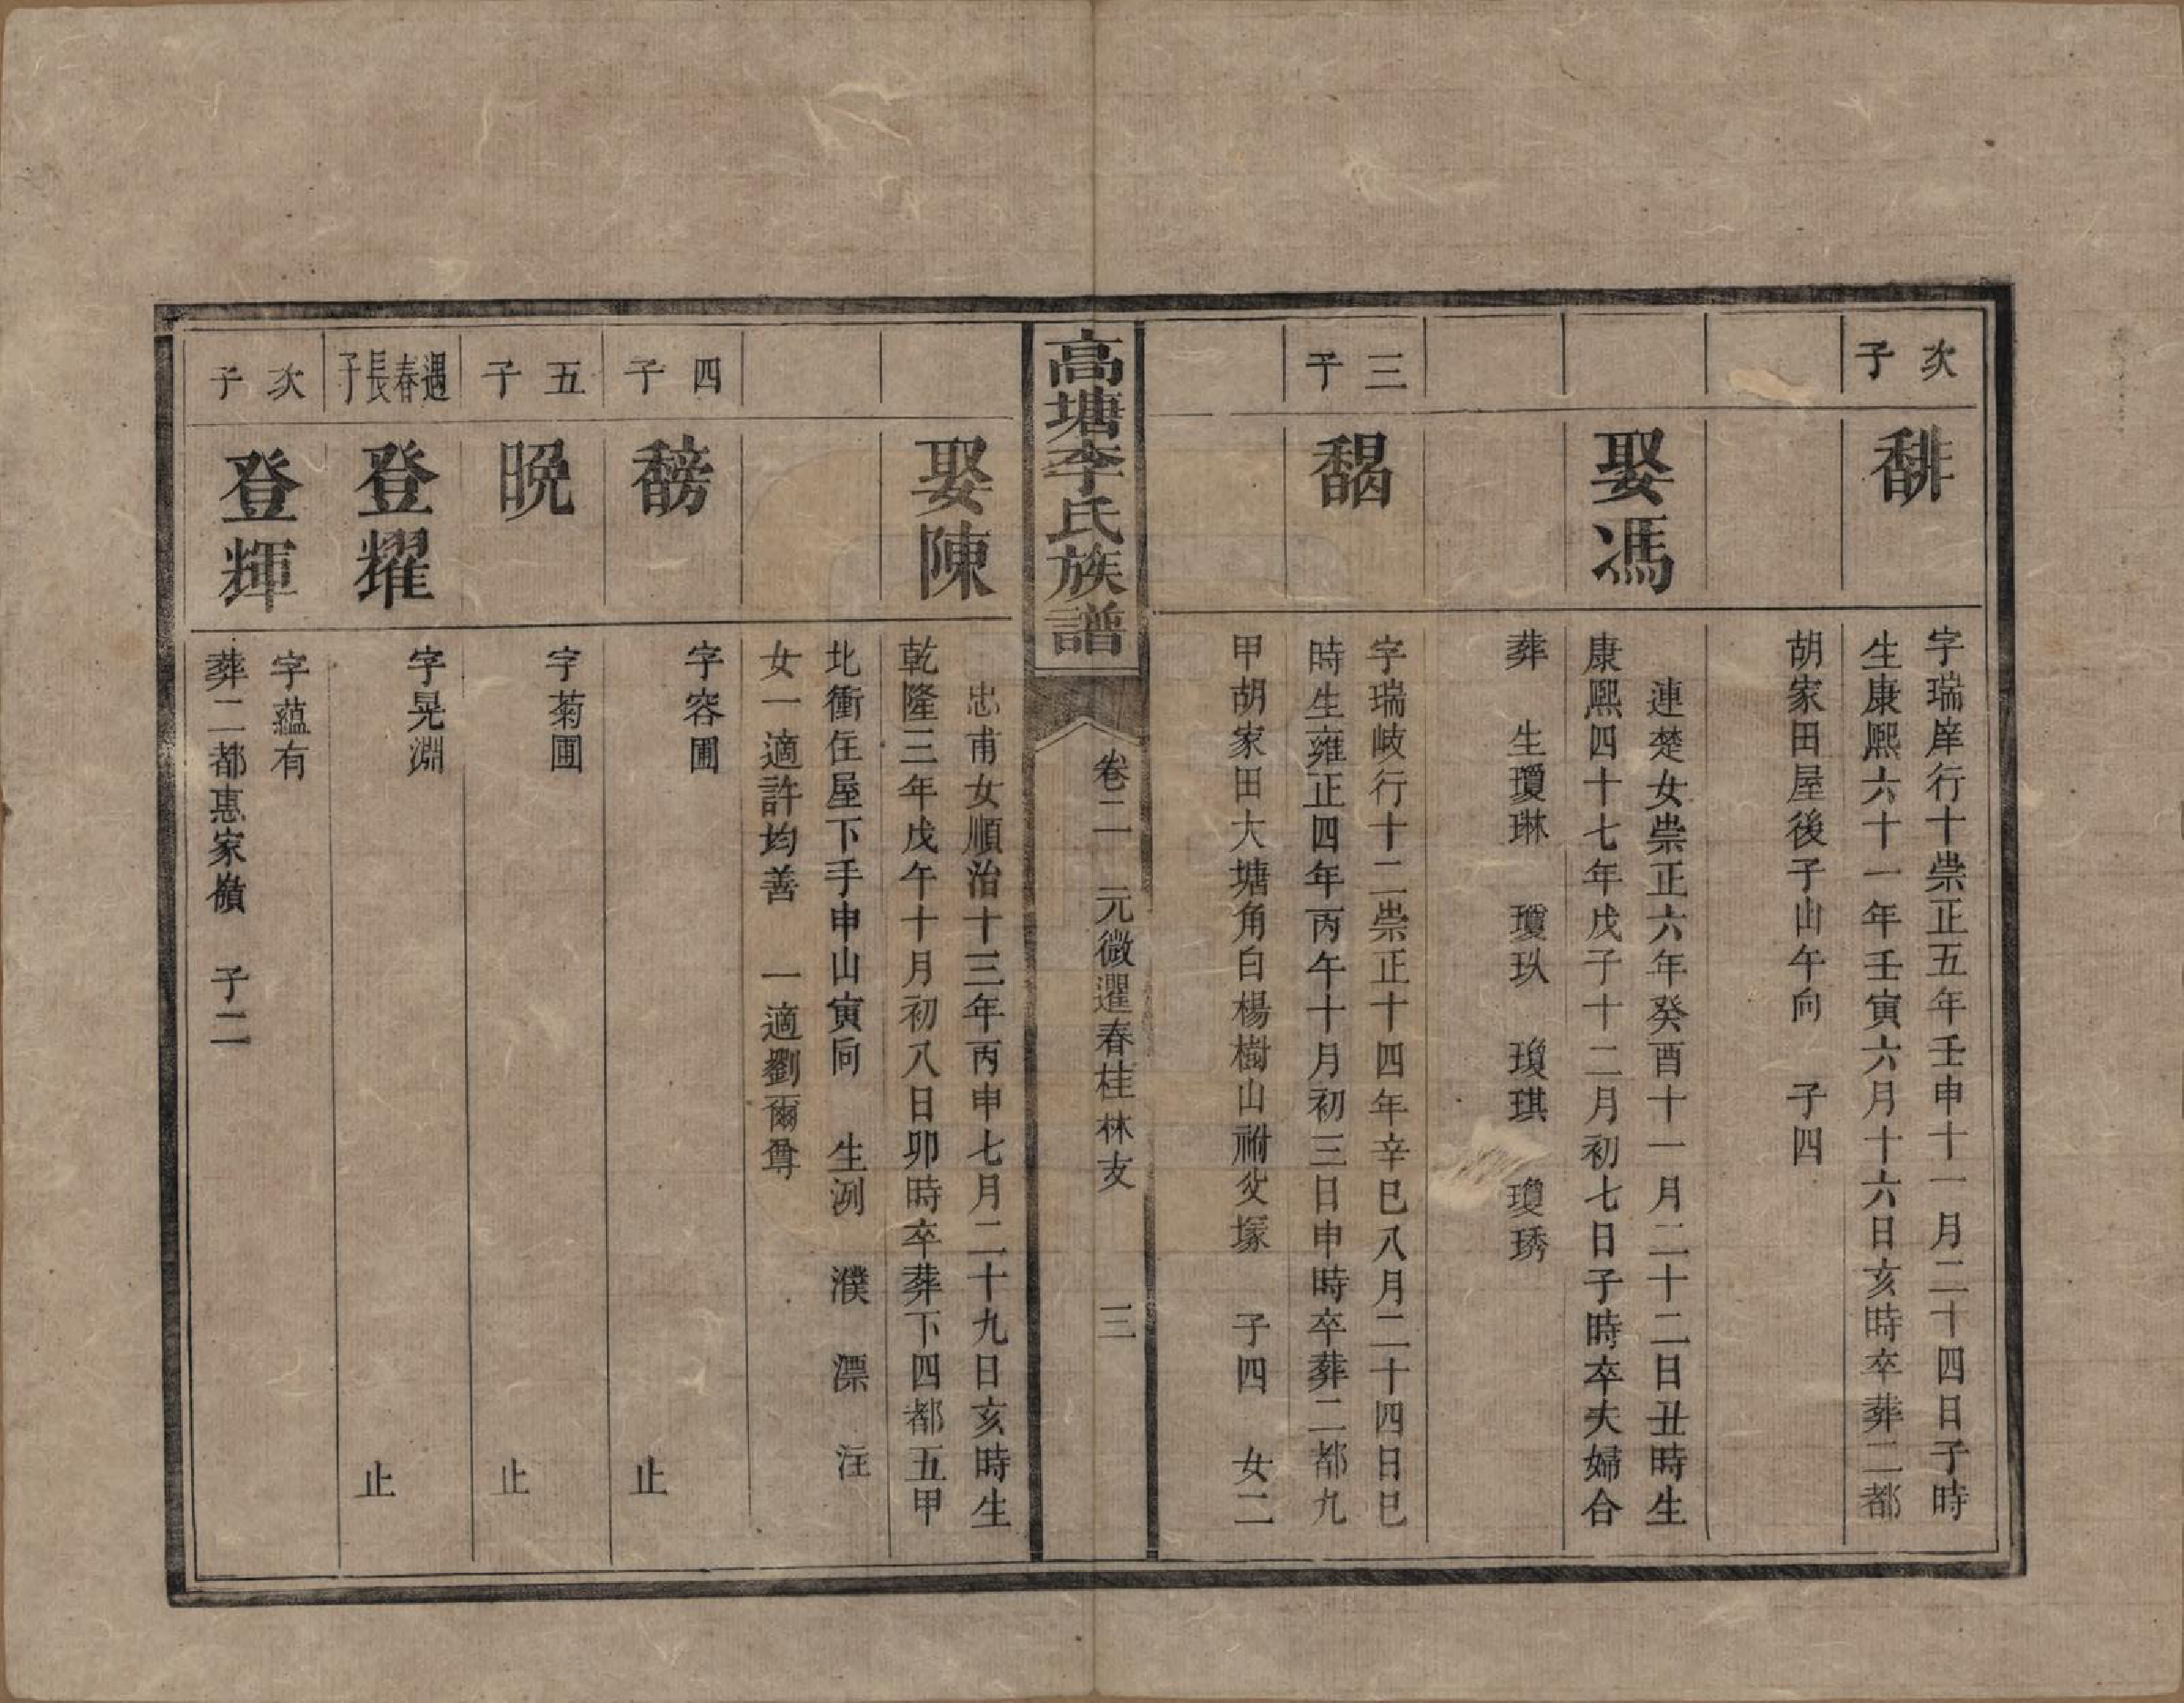 次子
馡
字瑞岸行十崇正五年壬申十一月二十四日子時
生康熙六十一年壬寅六月十六日亥時卒葬二都
胡家田屋後子山午向 子四
娶馮
連楚女崇正六年癸酉十一月二十二日丑時生
康熙四十七年戊子十二月初七日子時卒夫婦合
葬 生瓊琳 瓊玖 瓊琪 瓊琇
三子
馤
字瑞岐行十二崇正十四年辛巳八月二十四日巳
時生雍正四年丙午十月初三日申時卒葬二都九
甲胡家田大塘角白楊樹山祔父塚 子四 女二
高塘李氏族譜
卷二 元微暹春桂林支 三
娶陳
忠甫女順治十三年丙申七月二十九日亥時生
乾隆三年戊午十月初八日卯時卒葬下四都五甲
北衝住屋下手申山寅向 生洌 濮 漂 汪
女一適許均善 一適劉爾尊
四子
馪
字容圃
止
五子
晚
字菊圃
止
遇春長子
登耀
字晃淵
止
次子
登輝
字蘊有
葬二都惠家嶺 子二